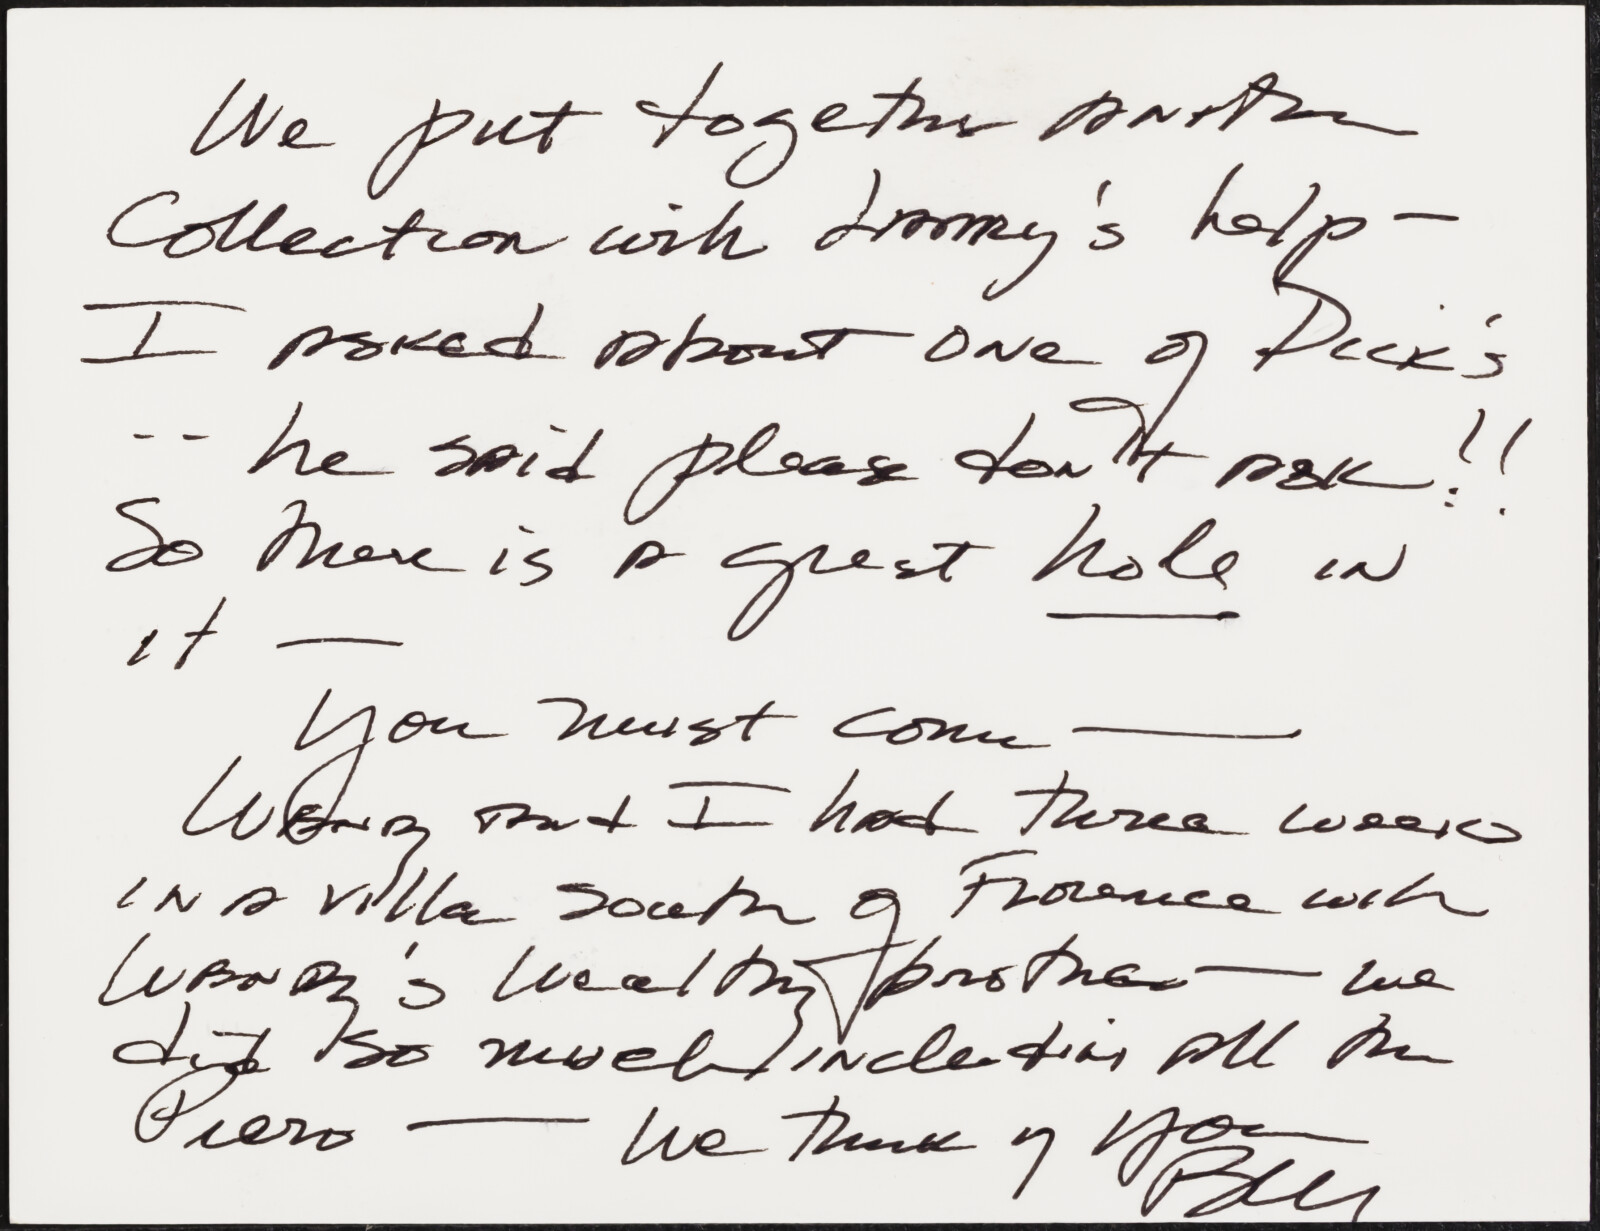 We put together another
Collection with Jimmy's help —
I asked about one of Dick's
-- he said please don't ask!!
So there is a great hole in
it —
You must come —
Wendy and I had three weeks
in a villa south of Florence with
Wendy's wealthy brother — we
did so much including all the
Piero — We think of you
Bill